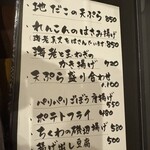 地だこの天ぷら 850
れんこんのはさみ揚げ
海老真丈もはさんでいます 850
海老と玉ねぎの
かき揚げ 720
天ぷら盛り合わせ
1,100
パリパリごぼう唐揚げ
550
ポテトフライ 550
ちくわの磯辺揚げ 550
揚げ出し豆腐